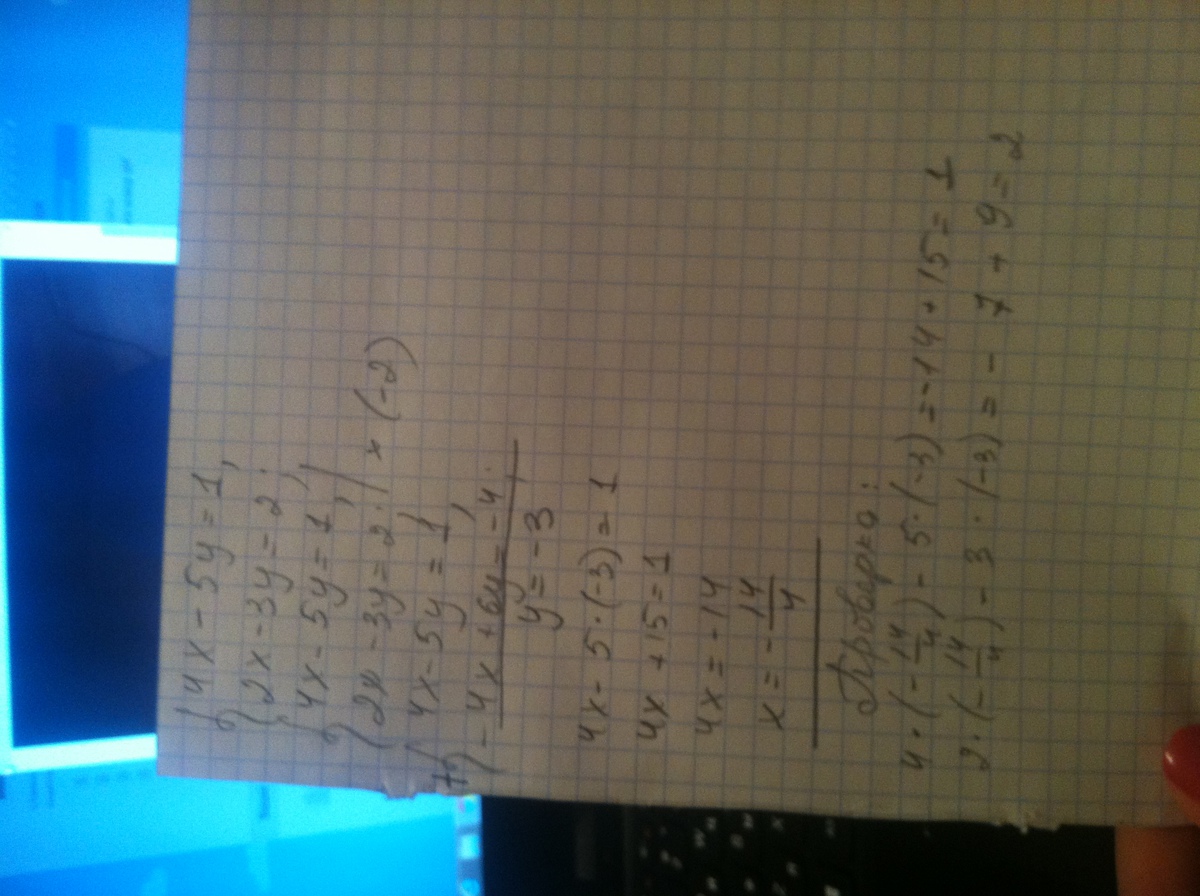 4x - 5y = 1,
2x - 3y = 2.
4x - 5y = 1,
2x - 3y = 2. | × (-2)
4x - 5y = 1,
+
-4x + 6y = -4.
y = -3
4x - 5 · (-3) = 1
4x + 15 = 1
4x = -14
x = - 14/4
Проверка:
4 · (- 14/4) - 5 · (-3) = -14 + 15 = 1
2 · (- 14/4) - 3 · (-3) = - 7 + 9 = 2